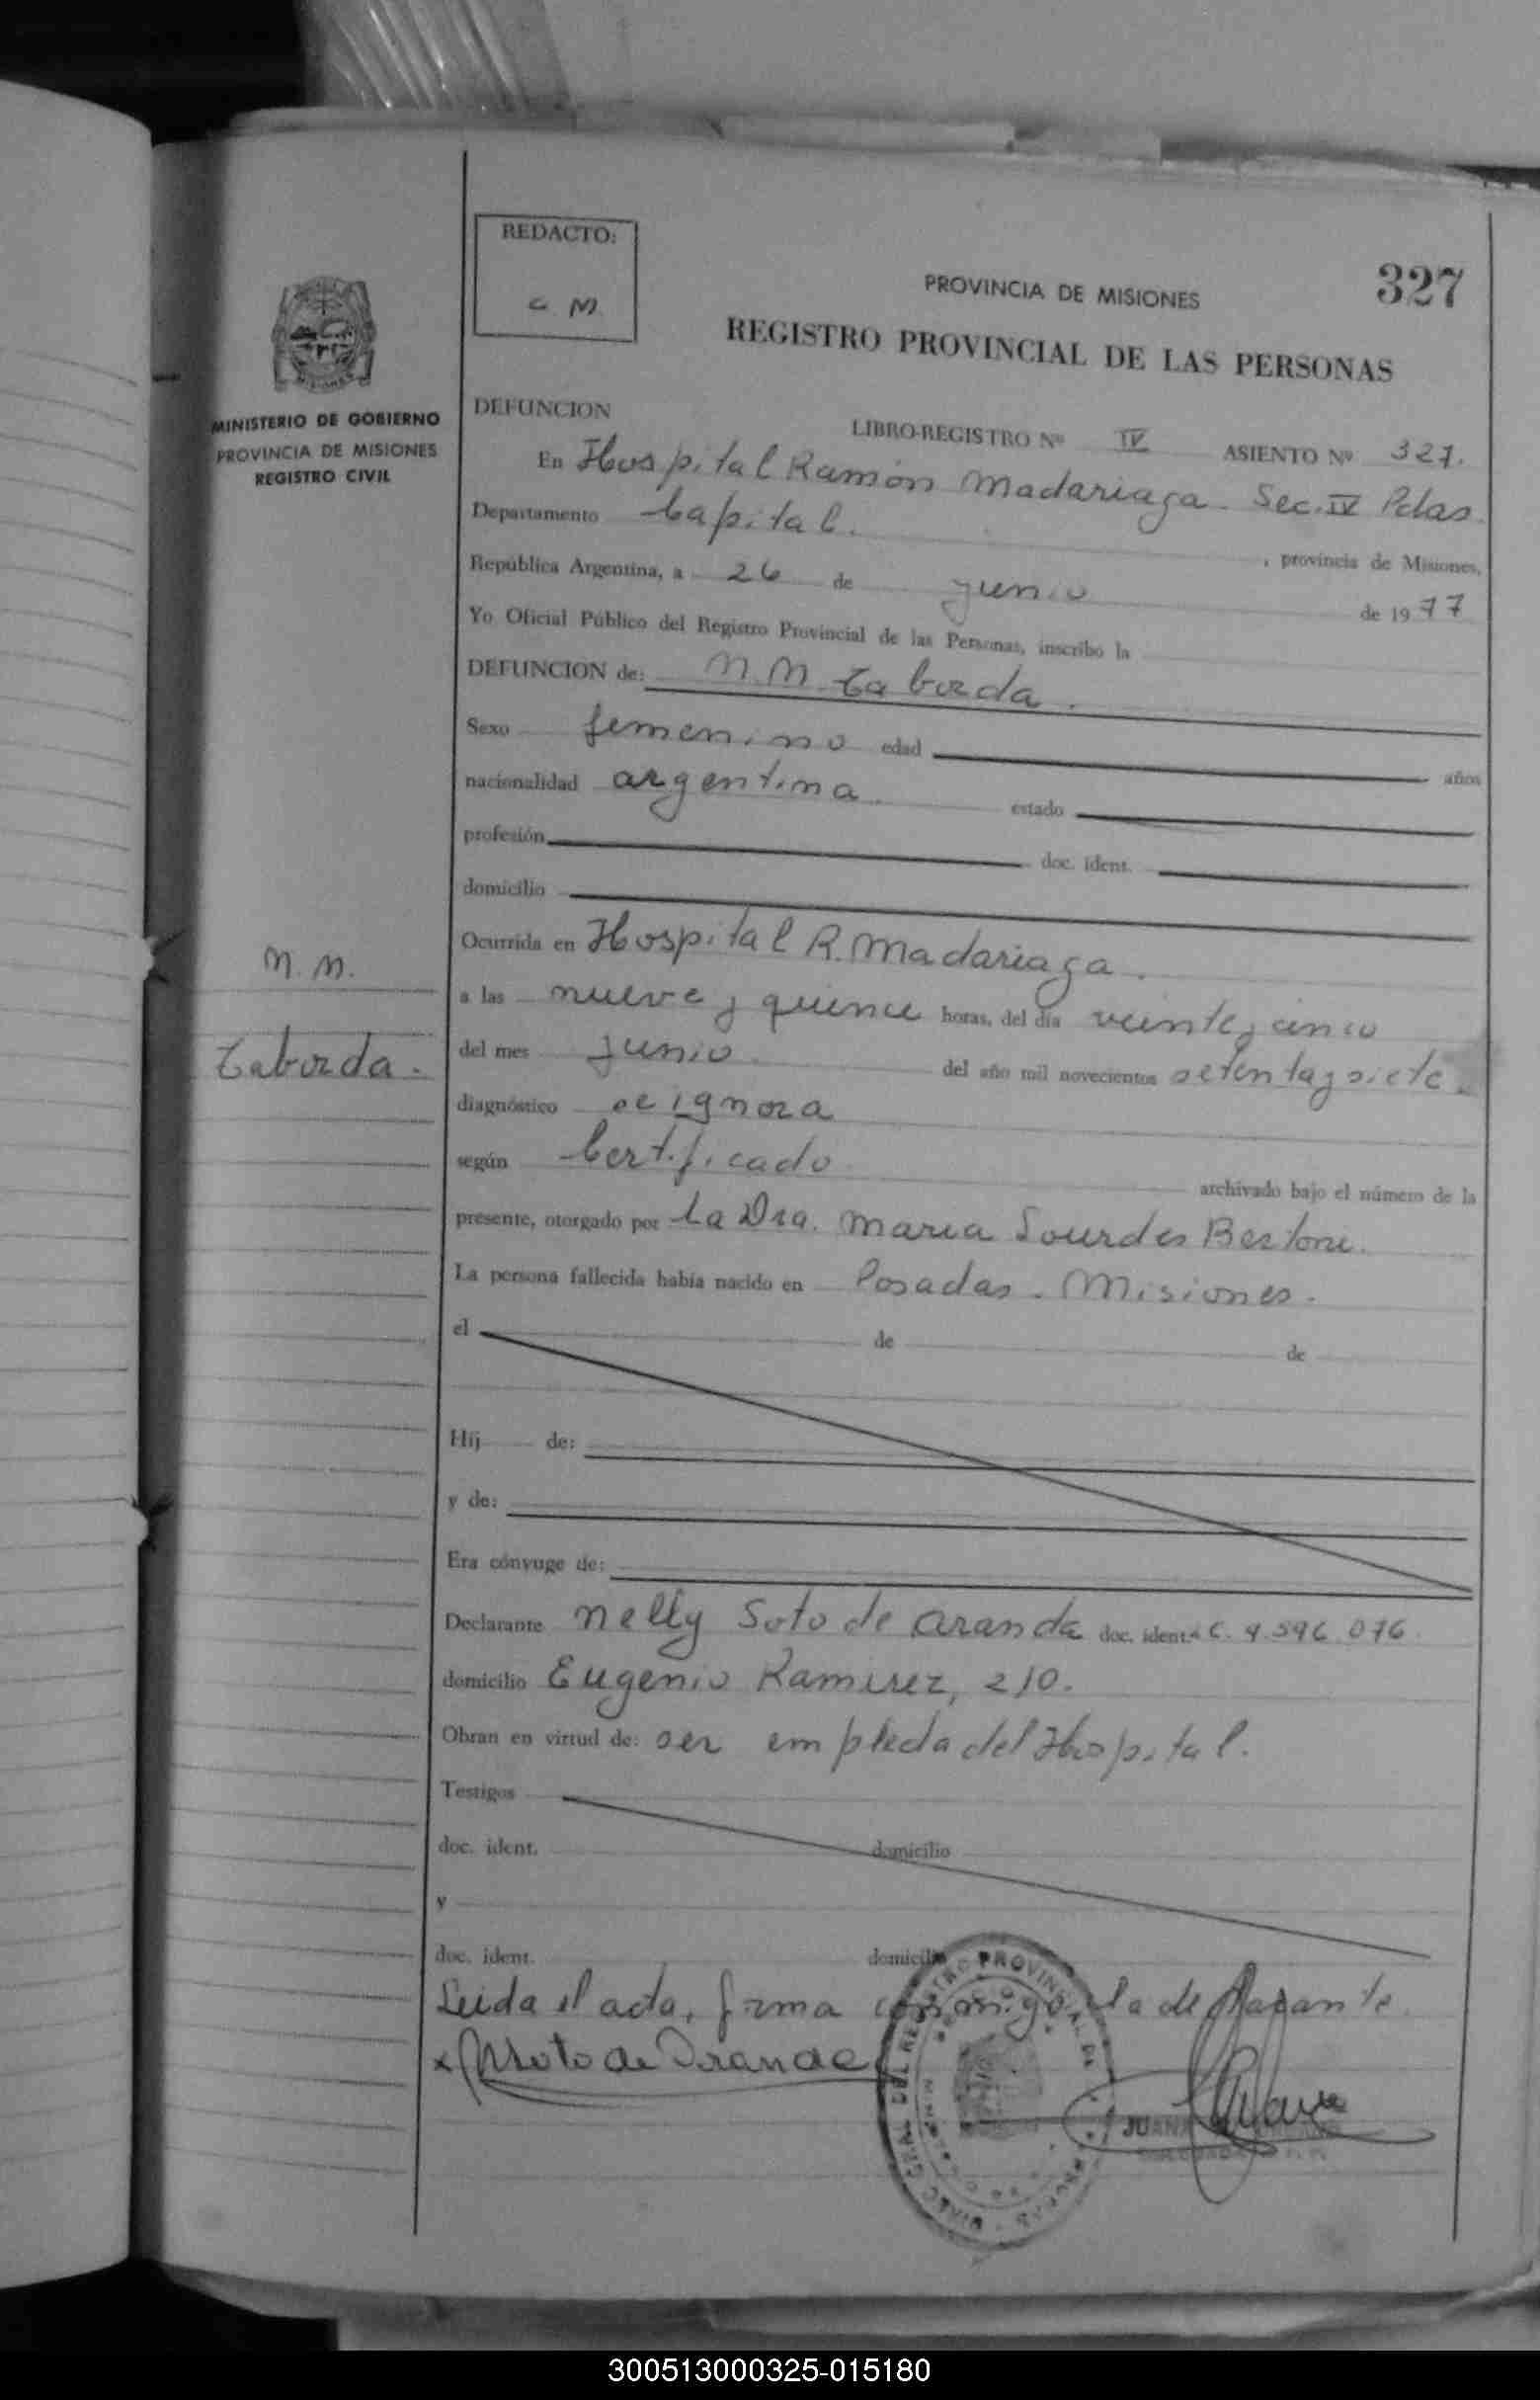 REDACTO:
C M
PROVINCIA DE MISIONES
327
REGISTRO PROVINCIAL DE LAS PERSONAS
MINISTERIO DE GOBIERNO
PROVINCIA DE MISIONES
REGISTRO CIVIL
DEFUNCION
LIBRO-REGISTRO Nº IV ASIENTO Nº 327.
En Hospital Ramón Madariaga. Sec. IV Pdas.
Departamento Capital. , provincia de Misiones,
República Argentina, a 26 de junio de 1977
Yo Oficial Público del Registro Provincial de las Personas, inscribo la
DEFUNCION de: N.N. Taborda.
Sexo femenino edad años
nacionalidad argentina. estado
profesión doc. ident.
domicilio
N.N.
Taborda.
Ocurrida en Hospital R. Madariaga.
a las nueve y quince horas, del día veinte y cinco
del mes junio del año mil novecientos setenta y siete.
diagnóstico se ignora
según Certificado archivado bajo el número de la
presente, otorgado por La Dra. Maria Lourdes Bertone.
La persona fallecida había nacido en Posadas. Misiones.
el de de
Hij de:
y de:
Era cónyuge de:
Declarante Nelly Soto de Aranda doc. ident. C. 4.596.076
domicilio Eugenio Ramirez, 210.
Obran en virtud de: ser empleda del Hospital.
Testigos
doc. ident. domicilio
y
doc. ident. domicilio
Leida el acta, firma conmigo la declarante.
x NSoto de Aranda
DEL REGISTRO PROVINCIAL DE
JUANA
300513000325-015180